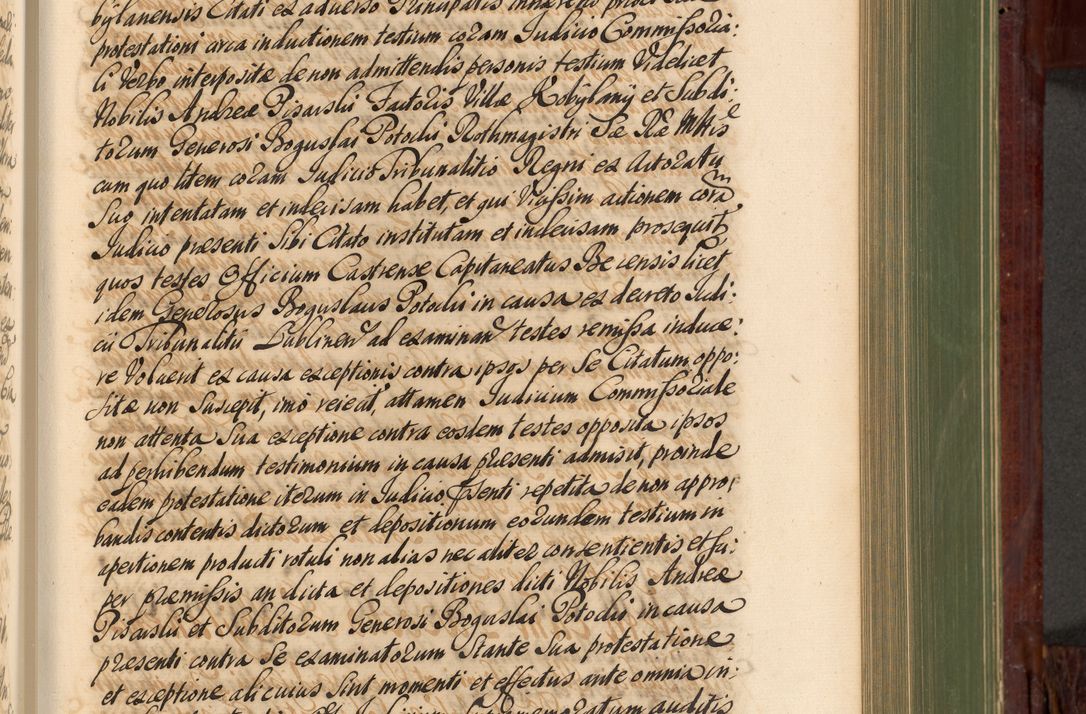 bylanensis Citati ex adverso Principalis inhærens priori suæ
protestationi circa inductionem testium coram Judicio Commissoria:
li Verbo interpositæ de non admittendis personis testium Videlicet
Nobilis Andreæ Pisarski Factoris Villæ Kobylany et Subdi:
torum Generosi Boguslai Potocki Rothmagistri Sæ Ræ Mttis
cum quo litem coram Judicio Tribunalitio Regni ex Actoratu
Suo intentatam et indecisam habet, et qui Vicissim actionem coram
Judicio præsenti Sibi Citato institutam et indecisam prosequit,
quos testes Officium Castrense Capitaneatus Becensis licet
idem Generosus Boguslaus Potocki in causa ex decreto Judi:
cii Tribunalitii Lublinen ad examinan testes remissa induce:
re Voluerit ex causa exceptionis contra ipsos per Se Citatum oppo:
sitæ non Suscepit, imò reiecit, attamen Judicium Commissoriale
non attenta Sua exceptione contra eosdem testes opposita ipsos
ad perhibendum testimonium in causa præsenti admisit, proinde
eadem protestatione iterum in Judicio psenti repetita de non appro:
bandis contentis dictorum et depositionum eorundem testium in
apertionem producti rotuli non alias nec aliter consentientis et su:
per præmissis an dicta et depositiones dicti Nobilis Andreæ
Pisarski et Subditorum Generosi Boguslai Potocki in causa
præsenti contra Se examinatorum Stante Sua protestatione
et exceptione alicuius Sint momenti et effectus ante omnia in:
auditis